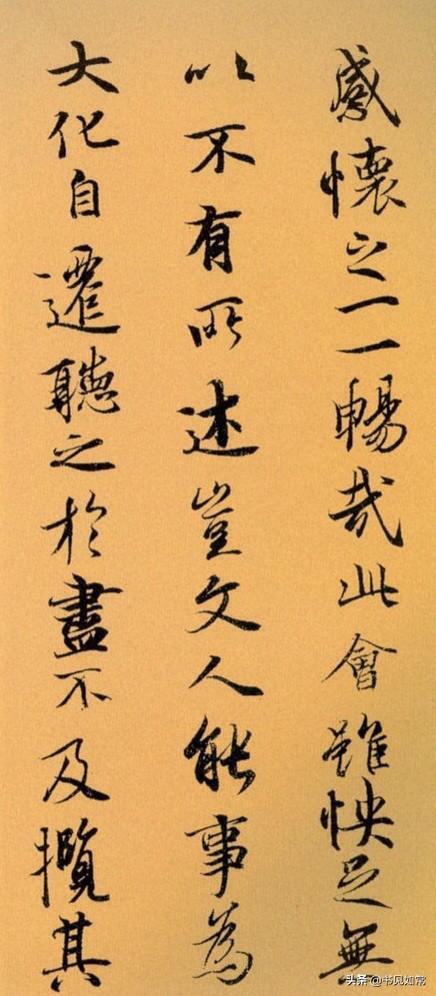 感懷之一一暢哉此會雖怏足無
以不有所述豈文人能事為
大化自遷聽之於盡不及攬其
头条 @书见如常